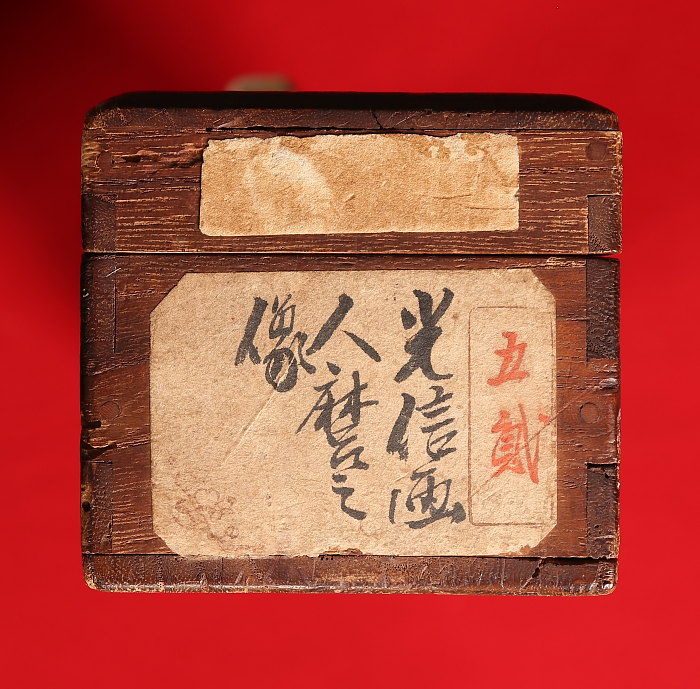 五貳
光信画
人麿之
像